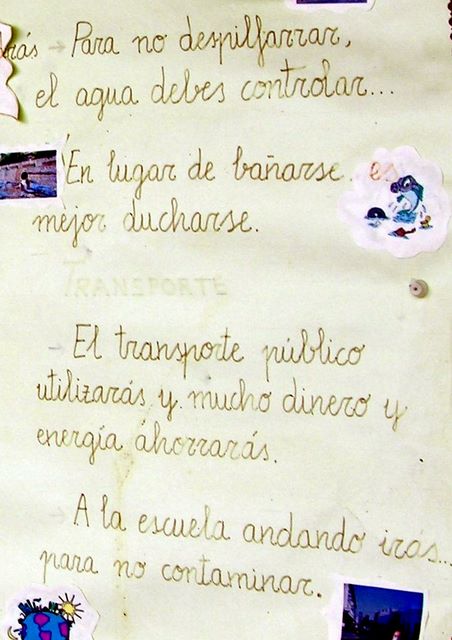 rás → Para no despilfarrar,
el agua debes controlar...
En lugar de bañarse es
mejor ducharse.
TRANSPORTE
→ El transporte público
utilizarás y mucho dinero y
energía áhorrarás.
→ A la escuela andando irás...
para no contaminar.